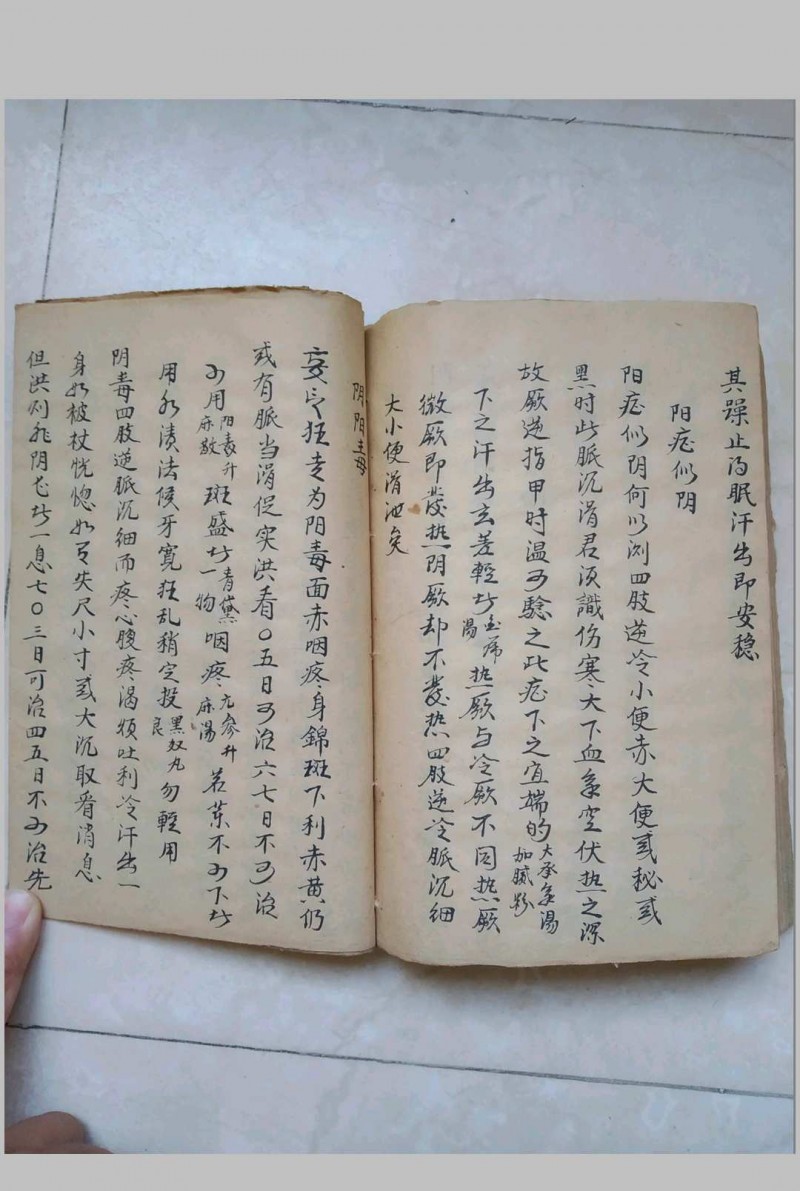 其躁止得眠汗出即安稳
阳症似阴
阳症似阴何以测四肢逆冷小便赤大便或秘或
黑时此脉沉滑君须識伤寒大下血氣空伏热之深
故厥逆指甲时温可騐之此症下之宜端的大承氣湯加膩粉
下之汗出玄差輕些白虎湯热厥与冷厥不同热厥
微厥即發热阴厥却不發热四肢逆冷脈沉細
大小便滑池矣
阴阳毒
妄言狂走为阳毒面赤咽疼身錦斑下利赤黄仍
或有脈当滑促实洪看〇五日可治六七日不可治
可用阳毒升麻散斑盛些青黛一物咽疼元参升麻湯若葉不可下些
用水漬法候牙寬狂乱稍定投黑奴丸勿輕用
阴毒四肢逆脈沉細而疼心腹疼渴煩吐利冷汗出一
身如被杖恍惚如 失尺小寸或大沉取看消息
但洪 阴 些一息七〇三日可治四五日不可治先